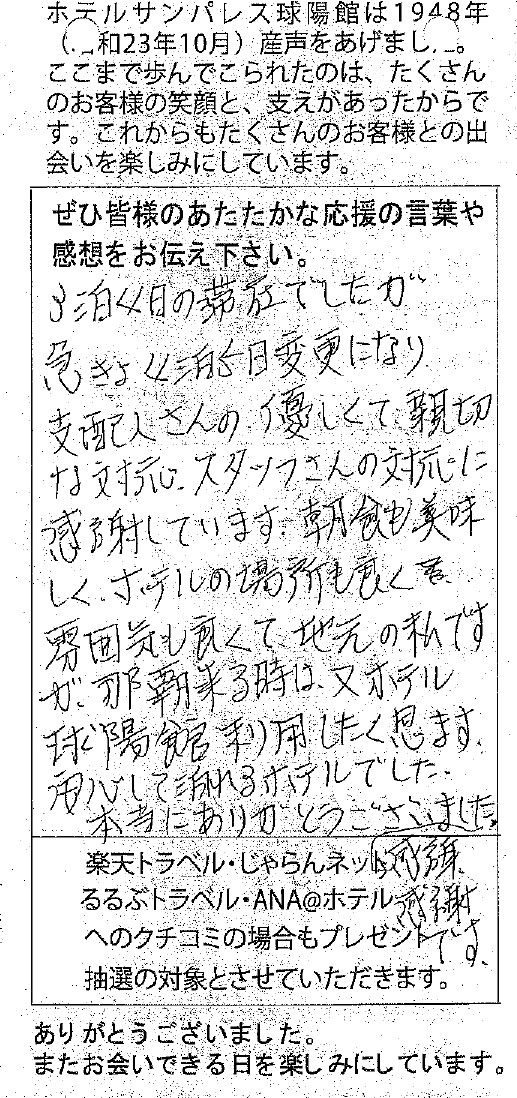 ホテルサンパレス球陽館は1948年
和23年10月）産声をあげまし
ここまで歩んでこられたのは、たくさん
のお客様の笑顔と、支えがあったからで
す。これからもたくさんのお客様との出
会いを楽しみにしています。
ぜひ皆様のあたたかな応援の言葉や
感想をお伝え下さい。
3泊4日の滞在でしたが
急きょ4泊5日変更になり
支配人さんの、優しくて、親切
な対応、スタッフさんの対応に
感謝しています。朝食も美味
しく、ホテルの場所も良く
雰囲気も良くて、地元の私です
が、那覇来る時は、又ホテル
球陽館利用したく思ます。
安心して泊れるホテルでした。
本当にありがとうございました。
楽天トラベル・じゃらんネット 感謝
るるぶトラベル・ANA@ホテル 感謝
へのクチコミの場合もプレゼント です。
抽選の対象とさせていただきます。
ありがとうございました。
またお会いできる日を楽しみにしています。